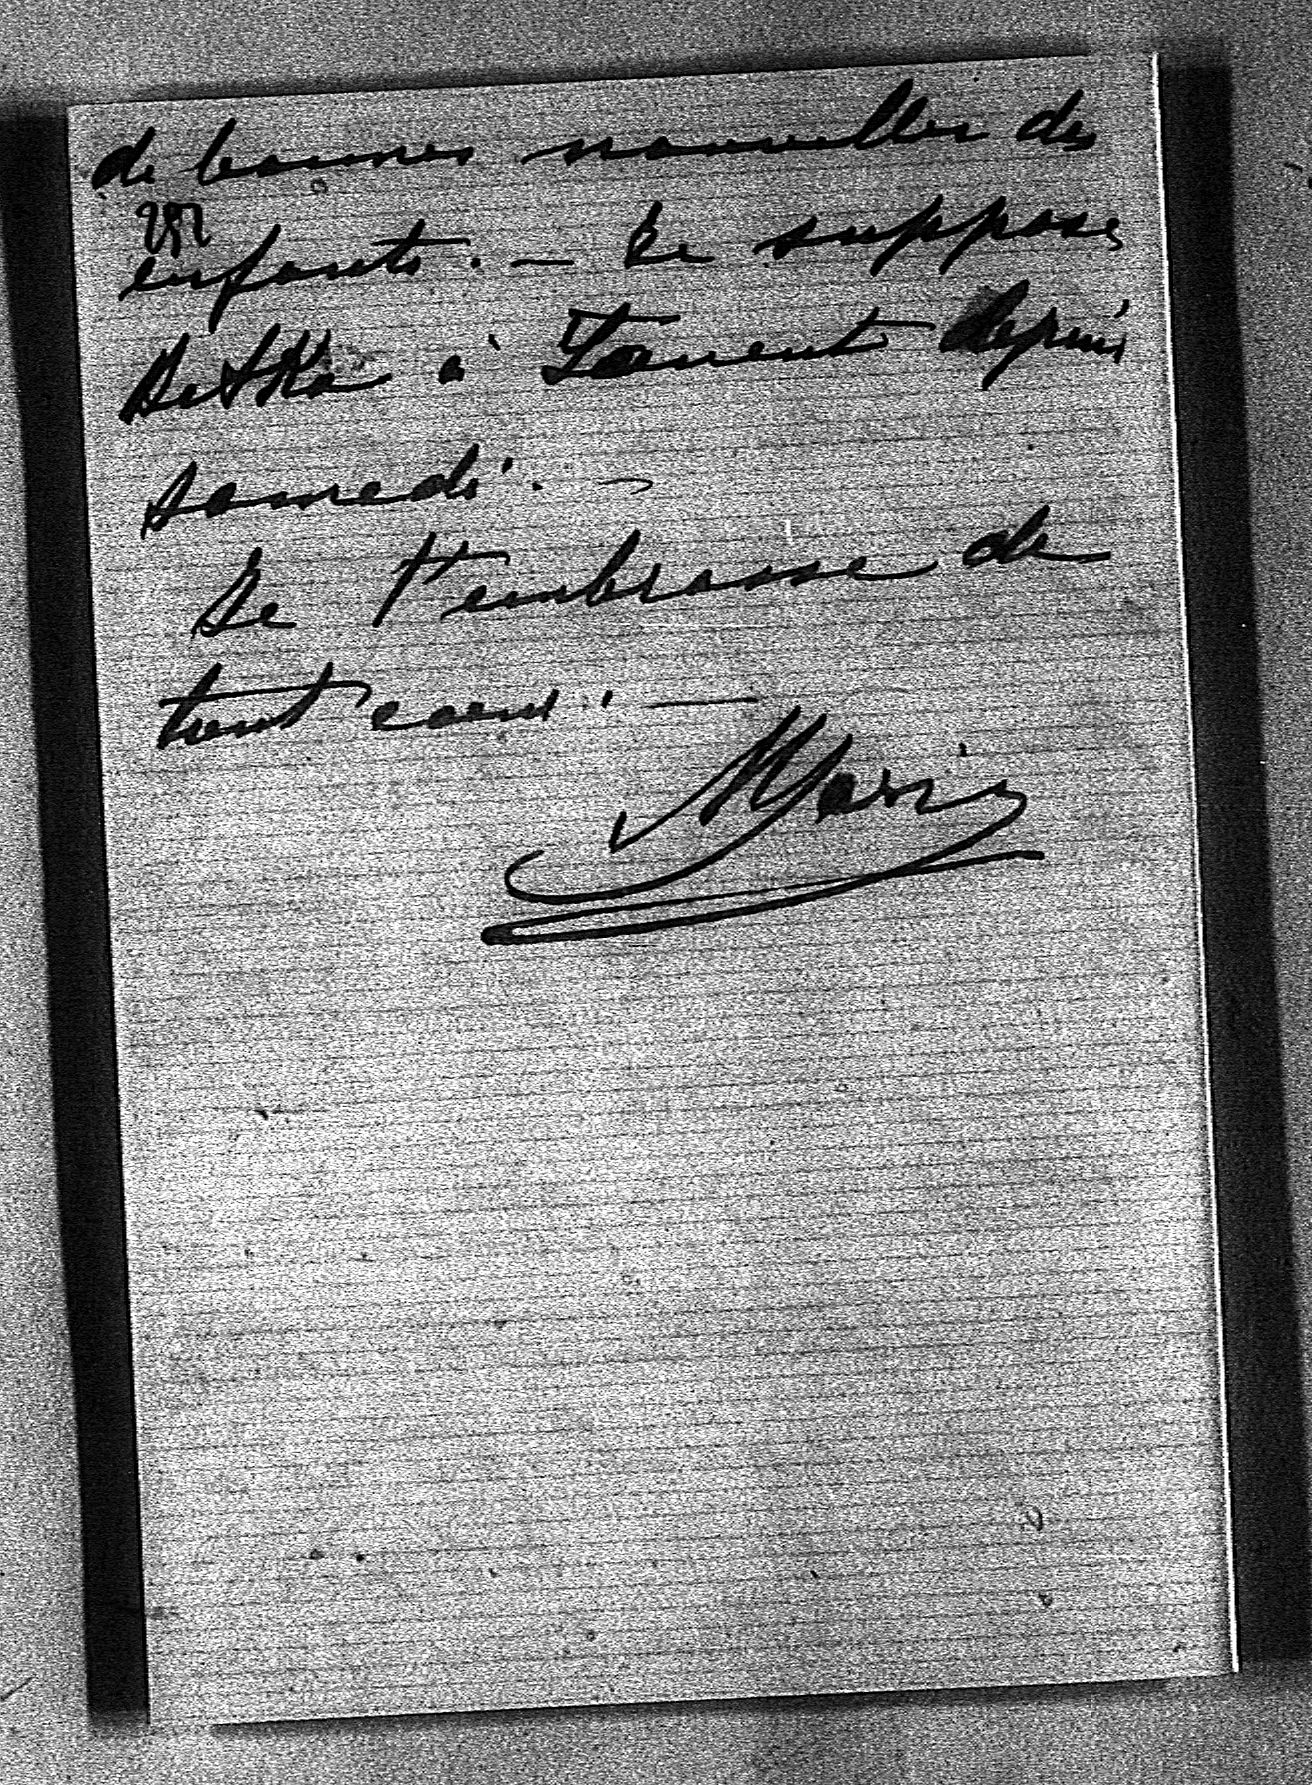 de bonnes nouvelles des
257
enfants. — Je suppose
à depuis
samedi. —
Je t'embrasse de
tout cœur. —
Marie